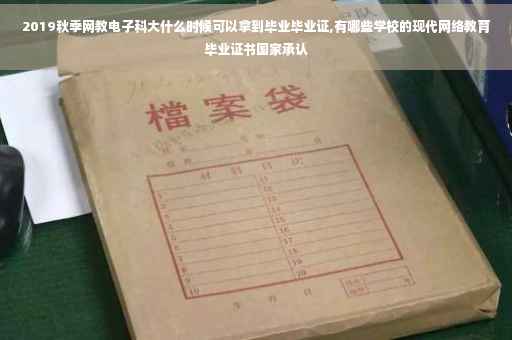 2019秋季网教电子科大什么时候可以拿到毕业毕业证,有哪些学校的现代网络教育
毕业证书国家承认
檔案袋
材料目次
1
2
3
4
5
6
7
8
9
10
11
12
13
14
15
16
17
18
19
20
年 月 日